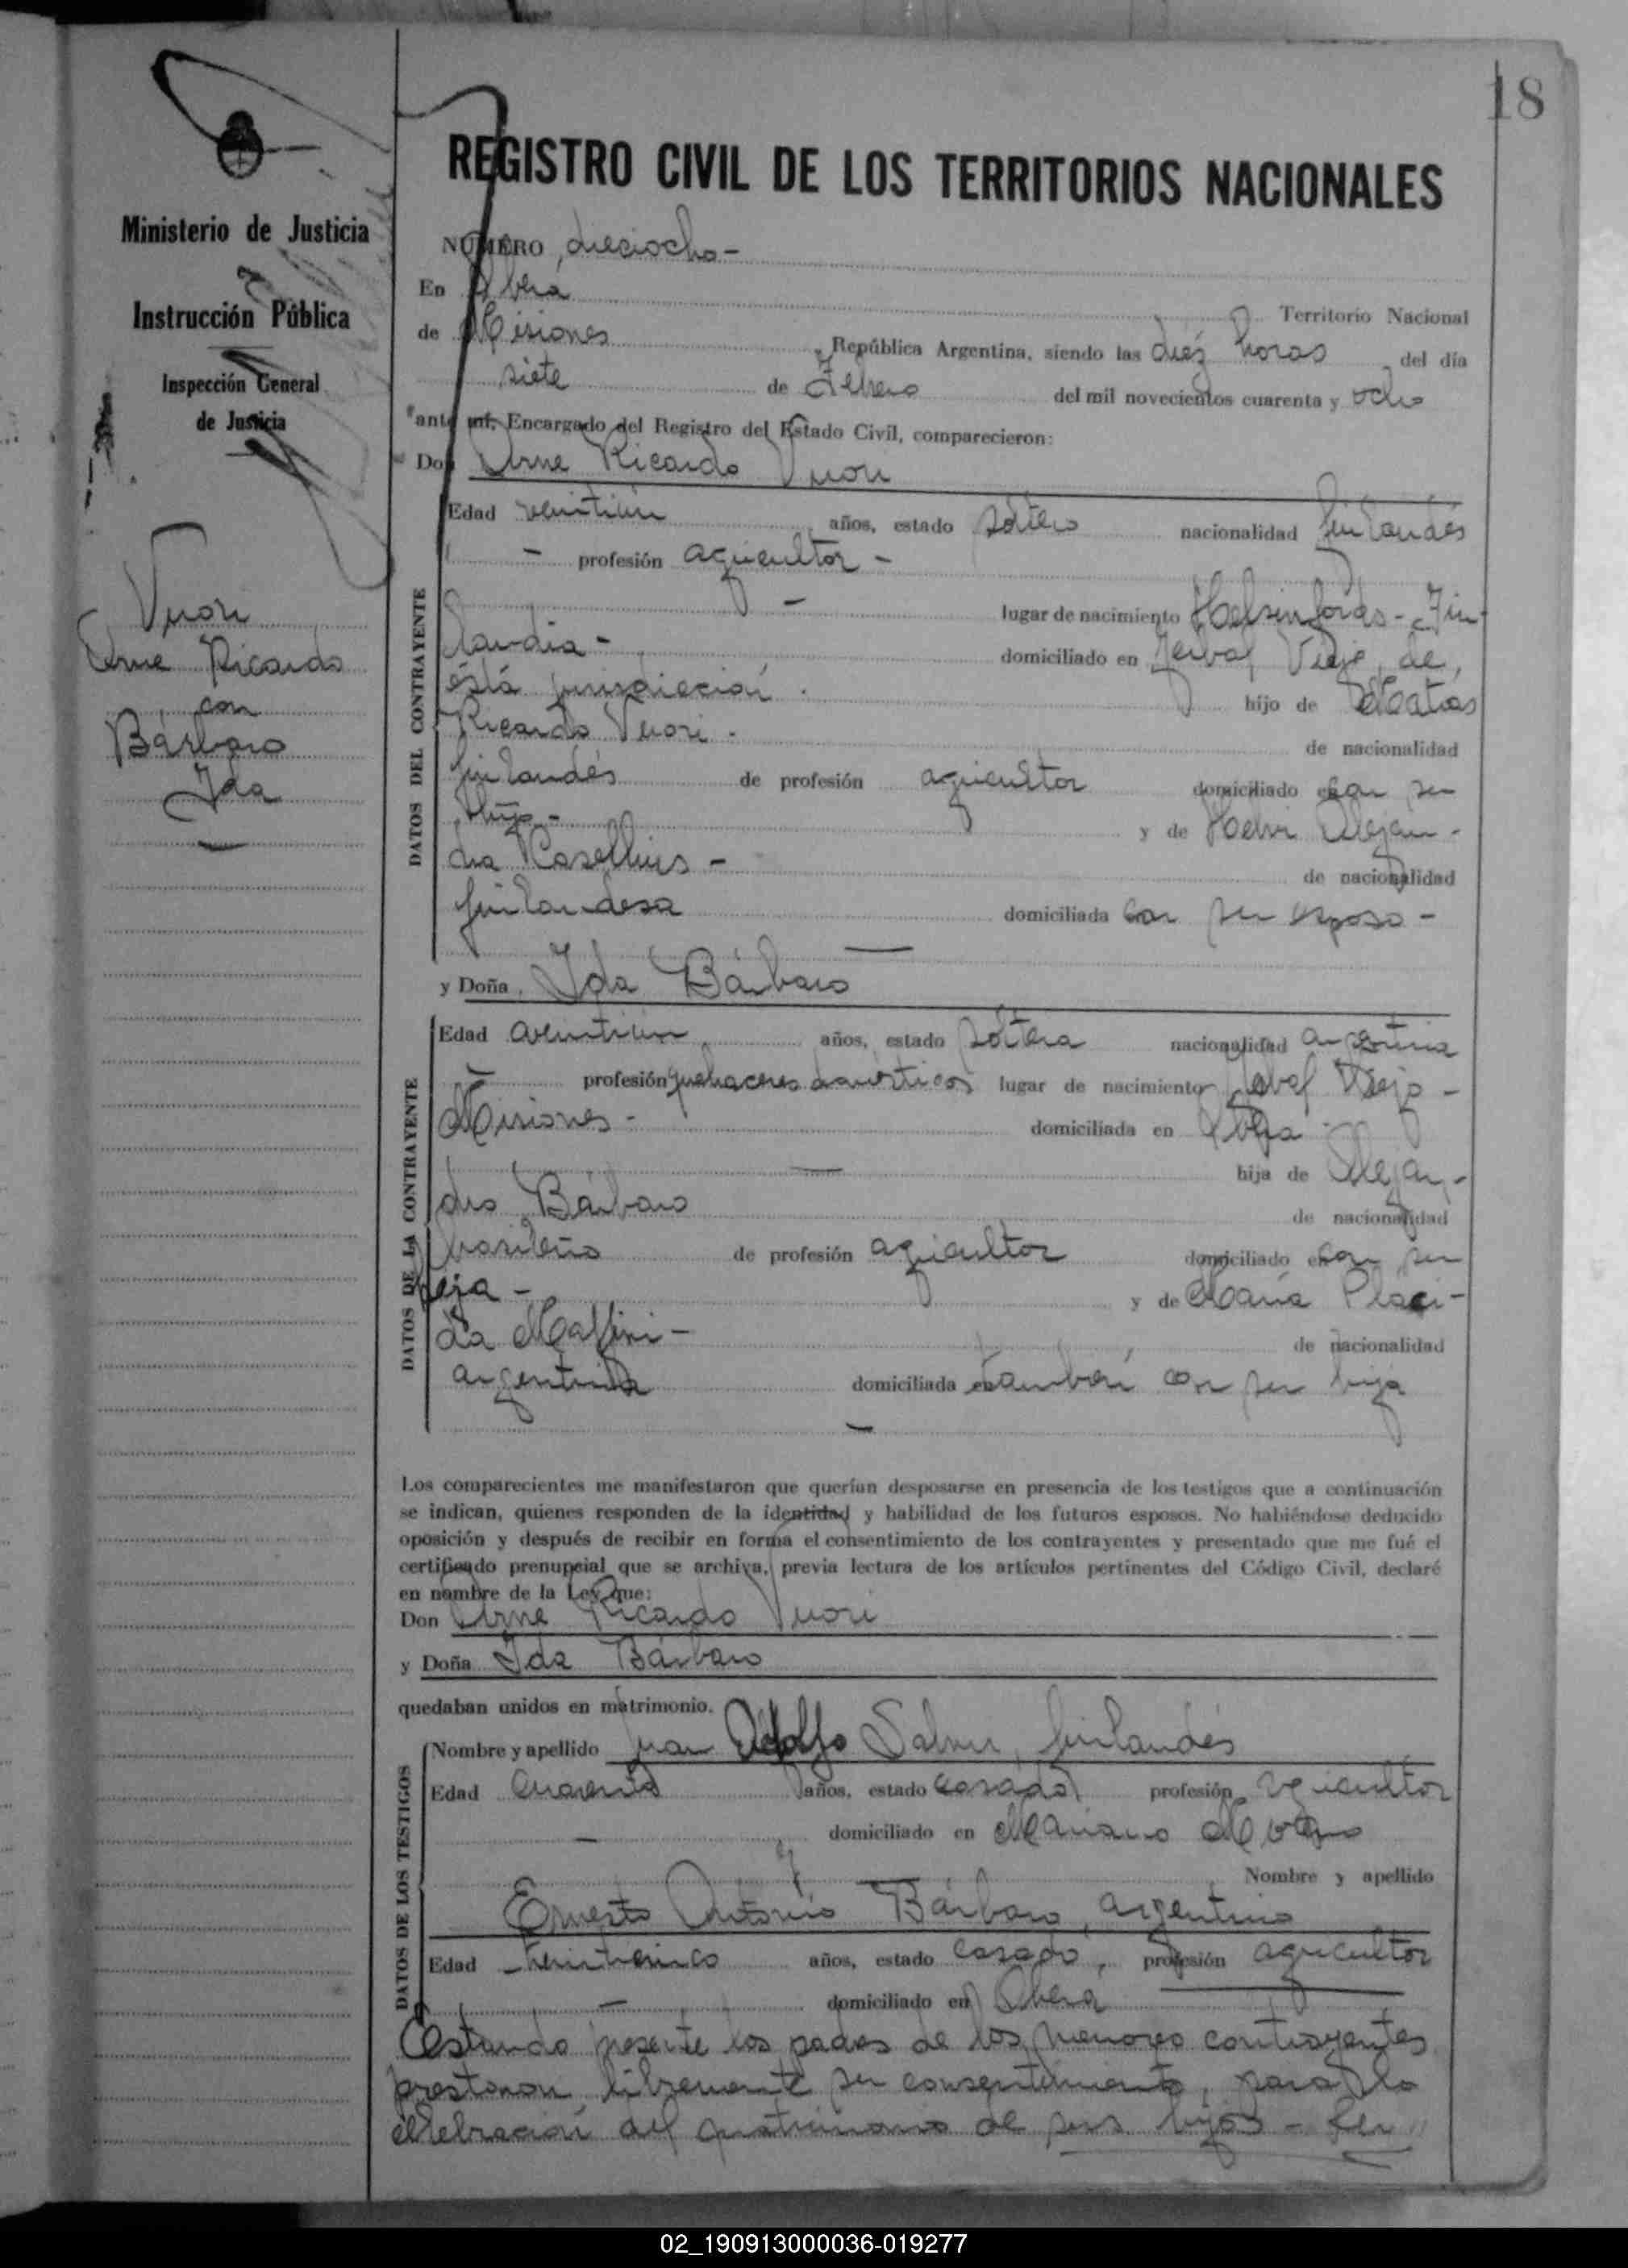 18
Ministerio de Justicia
Instrucción Pública
Inspección General
de Justicia
Vuori
Arne Ricardo
con
Bárbaro
Ida
REGISTRO CIVIL DE LOS TERRITORIOS NACIONALES
NÚMERO dieciocho -
En Oberá
Territorio Nacional
de Misiones República Argentina, siendo las diez horas del día
siete de Febrero del mil novecientos cuarenta y ocho
ante mí, Encargado del Registro del Estado Civil, comparecieron:
Don Arne Ricardo Vuori
DATOS DEL CONTRAYENTE
Edad veintiún años, estado soltero nacionalidad finlandés
- profesión agricultor -
- lugar de nacimiento Helsinfords - Fin-
landia - domiciliado en Yerbal Viejo, de
ésta jurisdicción. hijo de Matías
Ricardo Vuori - de nacionalidad
finlandés de profesión agricultor domiciliado con su
hijo - y de Helvi Alejan-
dra - de nacionalidad
finlandesa domiciliada con su esposo -
y Doña Ida Bárbaro
DATOS DE LA CONTRAYENTE
Edad veintiún años, estado soltera nacionalidad argentina
- profesión quehaceres domésticos lugar de nacimiento Yerbal Viejo -
Misiones - domiciliada en Oberá
hija de Alejan-
dro Bárbaro de nacionalidad
brasileño de profesión agricultor domiciliado con su
hija - y de María Pláci-
da - de nacionalidad
argentina domiciliada también con su hija
Los comparecientes me manifestaron que querían desposarse en presencia de los testigos que a continuación
se indican, quienes responden de la identidad y habilidad de los futuros esposos. No habiéndose deducido
oposición y después de recibir en forma el consentimiento de los contrayentes y presentado que me fué el
certificado prenupcial que se archiva, previa lectura de los artículos pertinentes del Código Civil, declaré
en nombre de la Ley que:
Don Arne Ricardo Vuori
y Doña Ida Bárbaro
quedaban unidos en matrimonio.
DATOS DE LOS TESTIGOS
Nombre y apellido Juan Adolfo finlandés
Edad cuarenta años, estado casado profesión agricultor
- domiciliado en Mariano Moreno
y Nombre y apellido
Ernesto Antonio Bárbaro, argentino
Edad años, estado casado, profesión agricultor
- domiciliado en Oberá
Estando presente los padres de los menores contrayentes
prestaron libremente su consentimiento, para la
celebración del matrimonio de sus hijos -
02_190913000036-019277